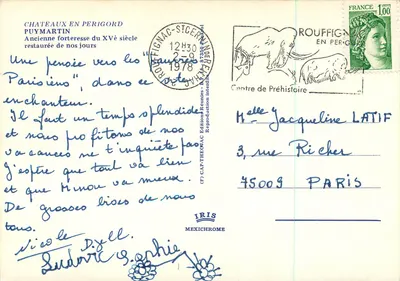 CHATEAUX EN PERIGORD
PUYMARTIN
Ancienne forteresse du XVè siècle
restaurée de nos jours
ROUFFIGNAC-ST CERNIN
12H30
2-9
1978
ROUFFIGNAC
EN PERIGORD
Centre de Préhistoire
1,00
FRANCE
Une pensée vers les "
Parisiens", dans ce
enchanteur.
Il fait un temps splendide
et nous profitons de nos
vacances ne t'inquiète pas
J'espère que tout va bien
et que Minou va mieux.
De grosses bises de nous
tous.
Nicole
Ludovic Sophie
Melle Jacqueline LATIF
3, rue Richer
75009 PARIS
IRIS
MEXICHROME